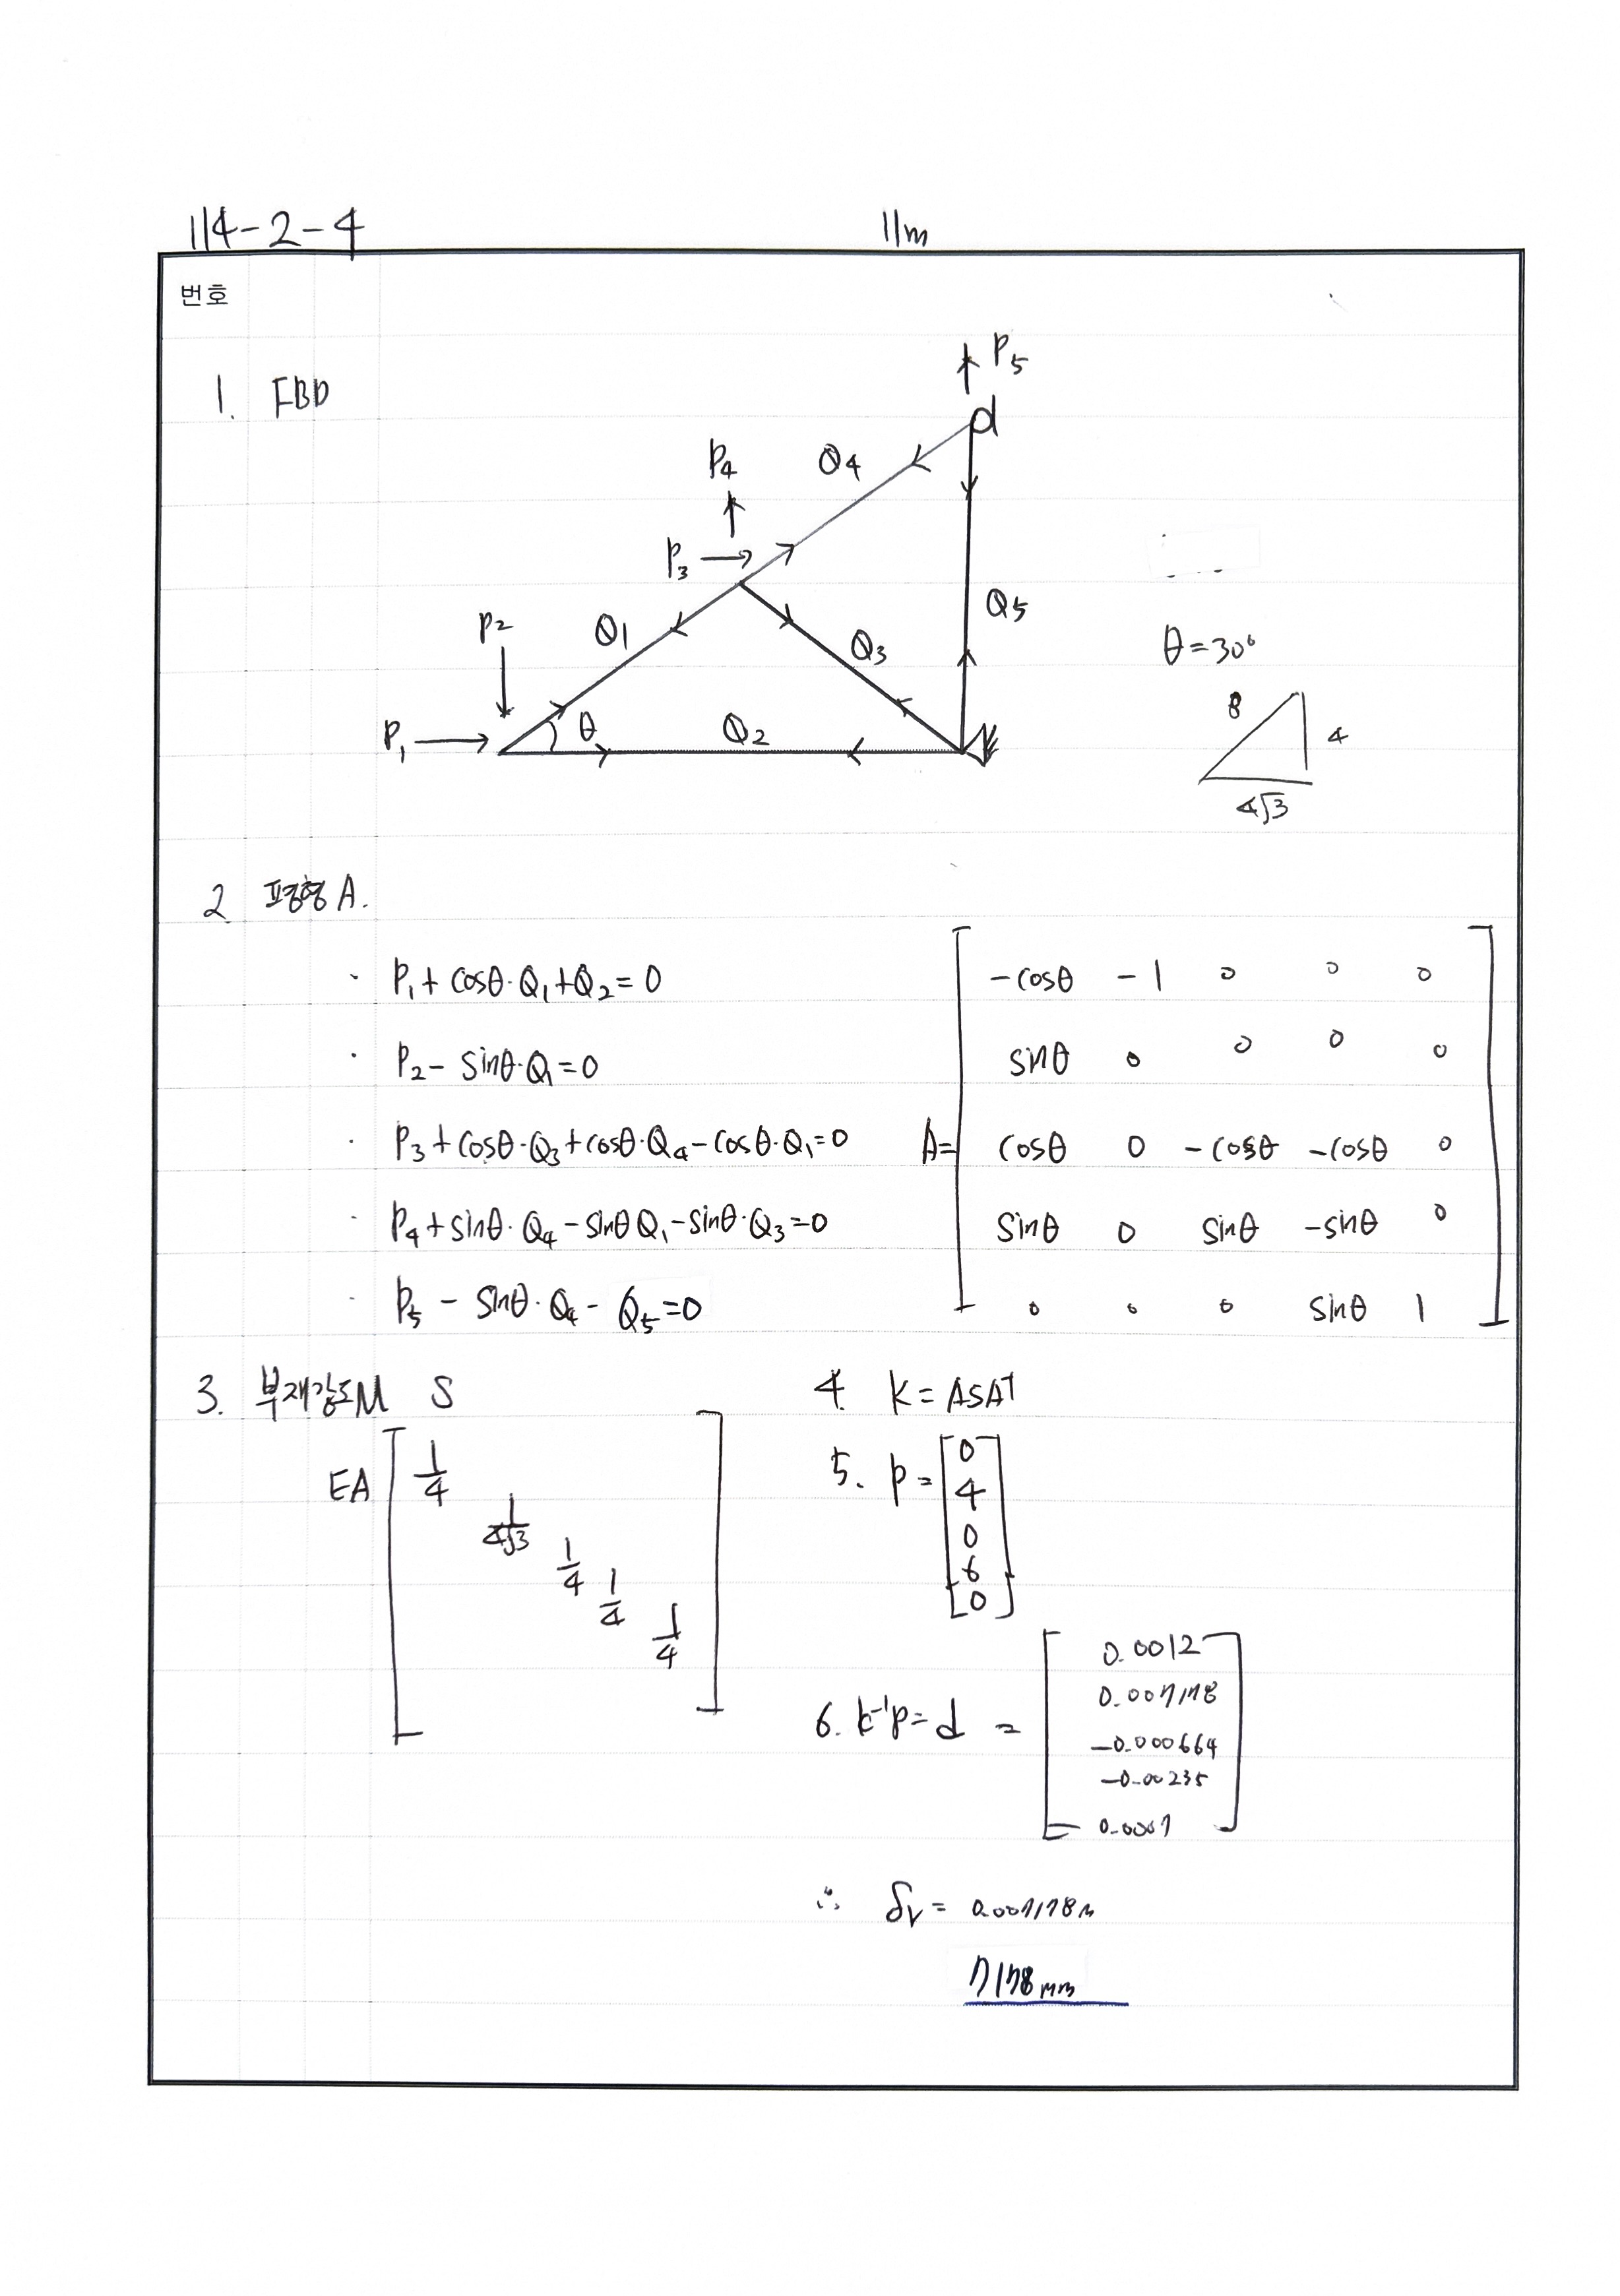 114-2-4
11m
번호
1. FBD
P5
d
P4
Q4
P3
Q5
P2
Q1
Q3
θ=30°
P1
θ
Q2
8
4
4√3
2 평형 A.
· P1+ cosθ·Q1+Q2=0
· P2- sinθ·Q1=0
· P3+cosθ·Q3+cosθ·Q4-cosθ·Q1=0
· P4+sinθ·Q4-sinθQ1-sinθ·Q3=0
· P5 - sinθ·Q4- Q5=0
A=
-cosθ -1 0 0 0
sinθ 0 0 0 0
cosθ 0 -cosθ -cosθ 0
sinθ 0 sinθ -sinθ 0
0 0 0 sinθ 1
3. 부재강도M S
EA
1/4
1/4√3
1/4
1/4
1/4
4. K=ASAT
5. P=
0
4
0
6
0
6. k-1P=d =
0.0012
-0.000664
-0.00235
∴ δv=